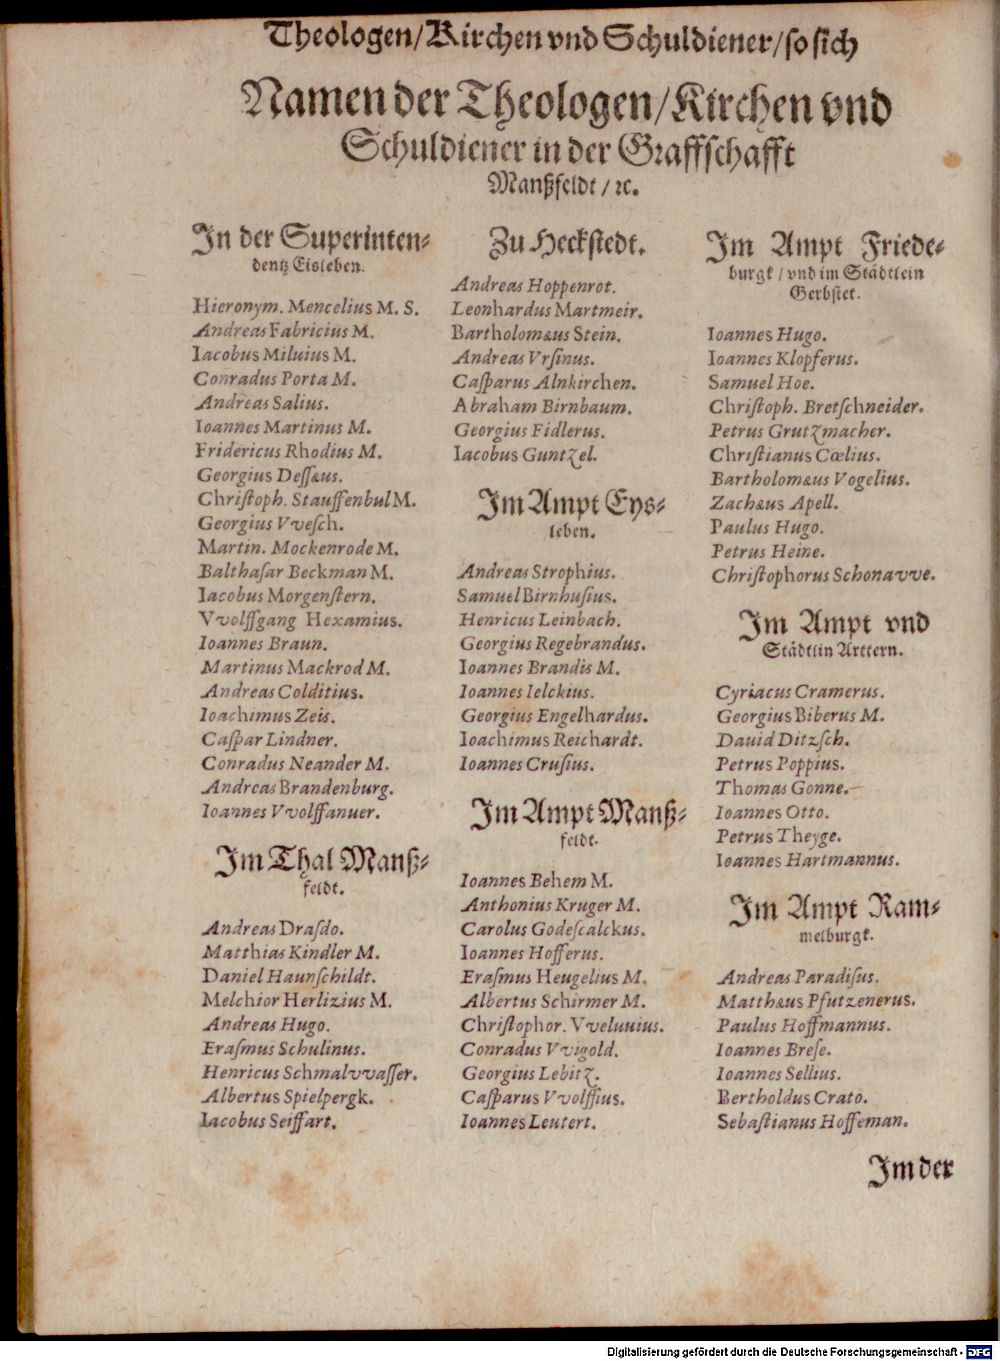 Theologen/Kirchen vnd Schuldiener/so sich
Namen der Theologen/Kirchen vnd
Schuldiener in der Graffschafft
Manßfeldt/ ꝛc.
In der Superinten-
dentz Eisleben.
Hieronym. Mencelius M. S.
Andreas Fabricius M.
Iacobus Miluius M.
Conradus Porta M.
Andreas Salius.
Ioannes Martinus M.
Fridericus Rhodius M.
Georgius Dessæus.
Christoph. Stauffenbul M.
Georgius Vvesch.
Martin. Mockenrode M.
Balthasar Beckman M.
Iacobus Morgenstern.
Vvolffgang Hexamius.
Ioannes Braun.
Martinus Mackrod M.
Andreas Colditius.
Ioachimus Zeis.
Caspar Lindner.
Conradus Neander M.
Andreas Brandenburg.
Ioannes Vvolffanuer.
Im Thal Manß-
feldt.
Andreas Drasdo.
Matthias Kindler M.
Daniel Haunschildt.
Melchior Herlizius M.
Andreas Hugo.
Erasmus Schulinus.
Henricus Schmalvvasser.
Albertus Spielpergk.
Iacobus Seiffart.
Zu Heckstedt.
Andreas Hoppenrot.
Leonhardus Martmeir.
Bartholomæus Stein.
Andreas Vrsinus.
Casparus Alnkirchen.
Abraham Birnbaum.
Georgius Fidlerus.
Iacobus Guntzel.
Im Ampt Eys-
leben.
Andreas Strophius.
Samuel Birnhusius.
Henricus Leinbach.
Georgius Regebrandus.
Ioannes Brandis M.
Ioannes Ielckius.
Georgius Engelhardus.
Ioachimus Reichardt.
Ioannes Crusius.
Im Ampt Manß-
feldt.
Ioannes Behem M.
Anthonius Kruger M.
Carolus Godescalckus.
Ioannes Hofferus.
Erasmus Heugelius M.
Albertus Schirmer M.
Christophor. Vveluuius.
Conradus Vvigold.
Georgius Lebitz.
Casparus Vvolffius.
Ioannes Leutert.
Im Ampt Friede-
burgk/ vnd im Städtlein
Gerbstet.
Ioannes Hugo.
Ioannes Klopferus.
Samuel Hoe.
Christoph. Bretschneider.
Petrus Grutzmacher.
Christianus Cœlius.
Bartholomæus Vogelius.
Zachæus Apell.
Paulus Hugo.
Petrus Heine.
Christophorus Schonavve.
Im Ampt vnd
Städtlin Arttern.
Cyriacus Cramerus.
Georgius Biberus M.
Dauid Ditzsch.
Petrus Poppius.
Thomas Gonne.
Ioannes Otto.
Petrus Theyge.
Ioannes Hartmannus.
Im Ampt Ram-
melburgk.
Andreas Paradisus.
Matthæus Pfutzenerus.
Paulus Hoffmannus.
Ioannes Brese.
Ioannes Sellius.
Bertholdus Crato.
Sebastianus Hoffeman.
Im der
Digitalisierung gefördert durch die Deutsche Forschungsgemeinschaft - DFG